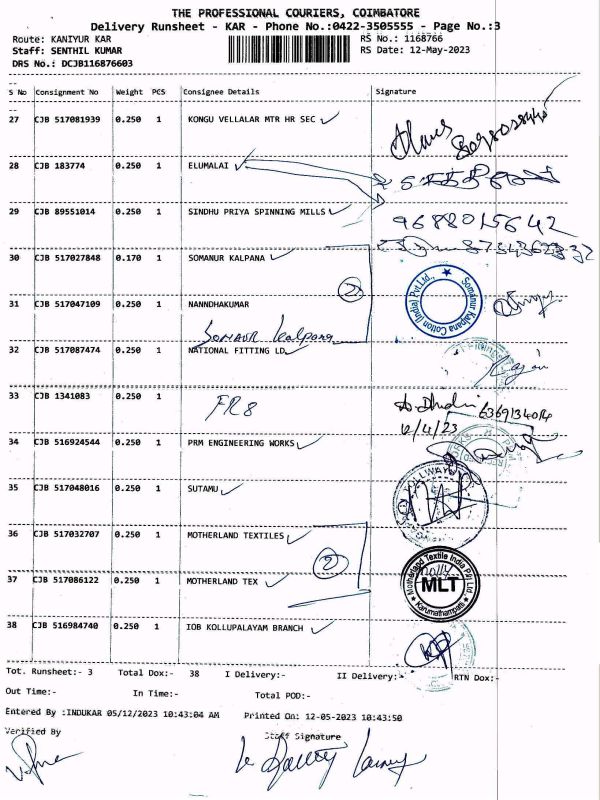 THE PROFESSIONAL COURIERS, COIMBATORE
Delivery Runsheet - KAR - Phone No.:0422-3505555 - Page No.:3
Route: KANIYUR KAR RS No.: 1168766
Staff: SENTHIL KUMAR RS Date: 12-May-2023
DRS No.: DCJB116876603
S No Consignment No Weight PCS Consignee Details Signature
27 CJB 517081939 0.250 1 KONGU VELLALAR MTR HR SEC
28 CJB 183774 0.250 1 ELUMALAI
29 CJB 89551014 0.250 1 SINDHU PRIYA SPINNING MILLS 9688015642
30 CJB 517027848 0.170 1 SOMANUR KALPANA
2
Somanur Kalpana Cotton (India) Pvt.Ltd.,
31 CJB 517047109 0.250 1 NANNDHAKUMAR
Somanur Kalpana
32 CJB 517087474 0.250 1 NATIONAL FITTING LD
33 CJB 1341083 0.250 1 FR8 6369134014
34 CJB 516924544 0.250 1 PRM ENGINEERING WORKS
35 CJB 517048016 0.250 1 SUTAMU
36 CJB 517032707 0.250 1 MOTHERLAND TEXTILES
2
Motherland Textile India P Ltd
MLT
Karumathampatti
37 CJB 517086122 0.250 1 MOTHERLAND TEX
38 CJB 516984740 0.250 1 IOB KOLLUPALAYAM BRANCH
Tot. Runsheet:- 3 Total Dox:- 38 I Delivery:- II Delivery:- RTN Dox:-
Out Time:- In Time:- Total POD:-
Entered By :INDUKAR 05/12/2023 10:43:04 AM Printed On: 12-05-2023 10:43:50
Verified By Staff Signature